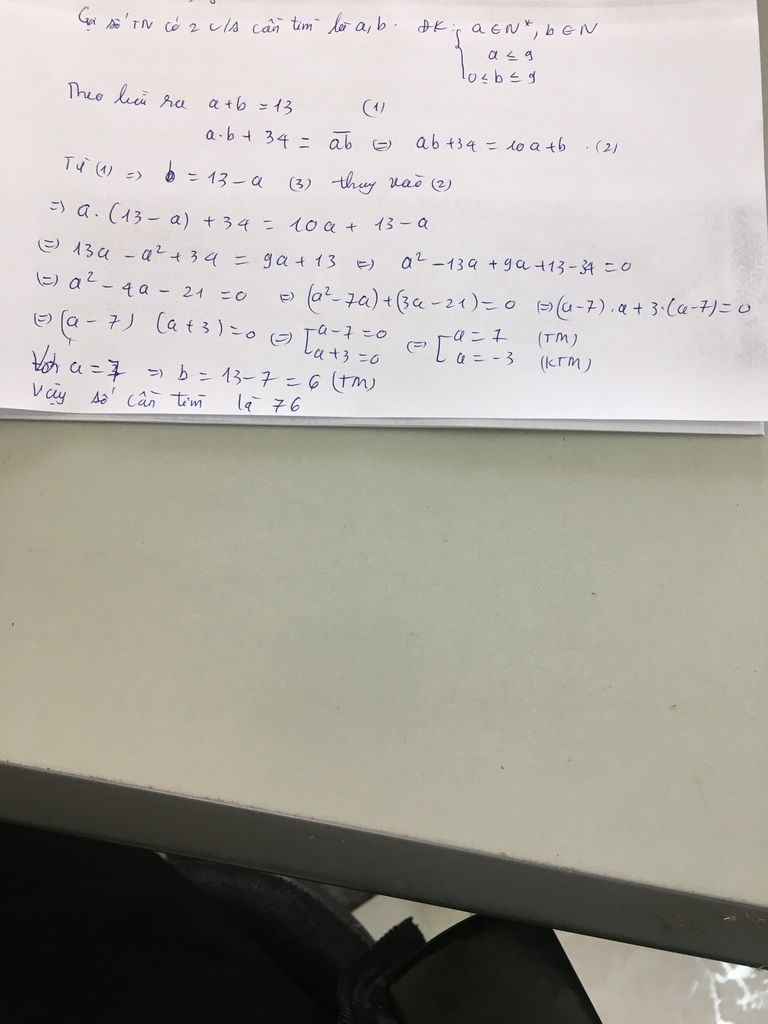 Gọi số TN có 2 c/s cần tìm là a,b. ĐK: { a ∈ N*, b ∈ N
a ≤ 9
0 ≤ b ≤ 9
Theo bài ra a+b = 13 (1)
a.b + 34 = \overline{ab} (=) ab+34 = 10a+b . (2)
Từ (1) => b = 13-a (3) thay vào (2)
=> a.(13-a) +34 = 10a + 13-a
(=) 13a - a² + 34 = 9a + 13 (=) a² - 13a + 9a + 13 - 34 = 0
(=) a² - 4a - 21 = 0 (=) (a² - 7a) + (3a - 21) = 0 (=) (a-7).a + 3.(a-7) = 0
(=) (a - 7) (a + 3) = 0 (=) [ a - 7 = 0 (=) [ a = 7 (TM)
a + 3 = 0 a = -3 (KTM)
Với a = 7 => b = 13 - 7 = 6 (TM)
Vậy số cần tìm là 76